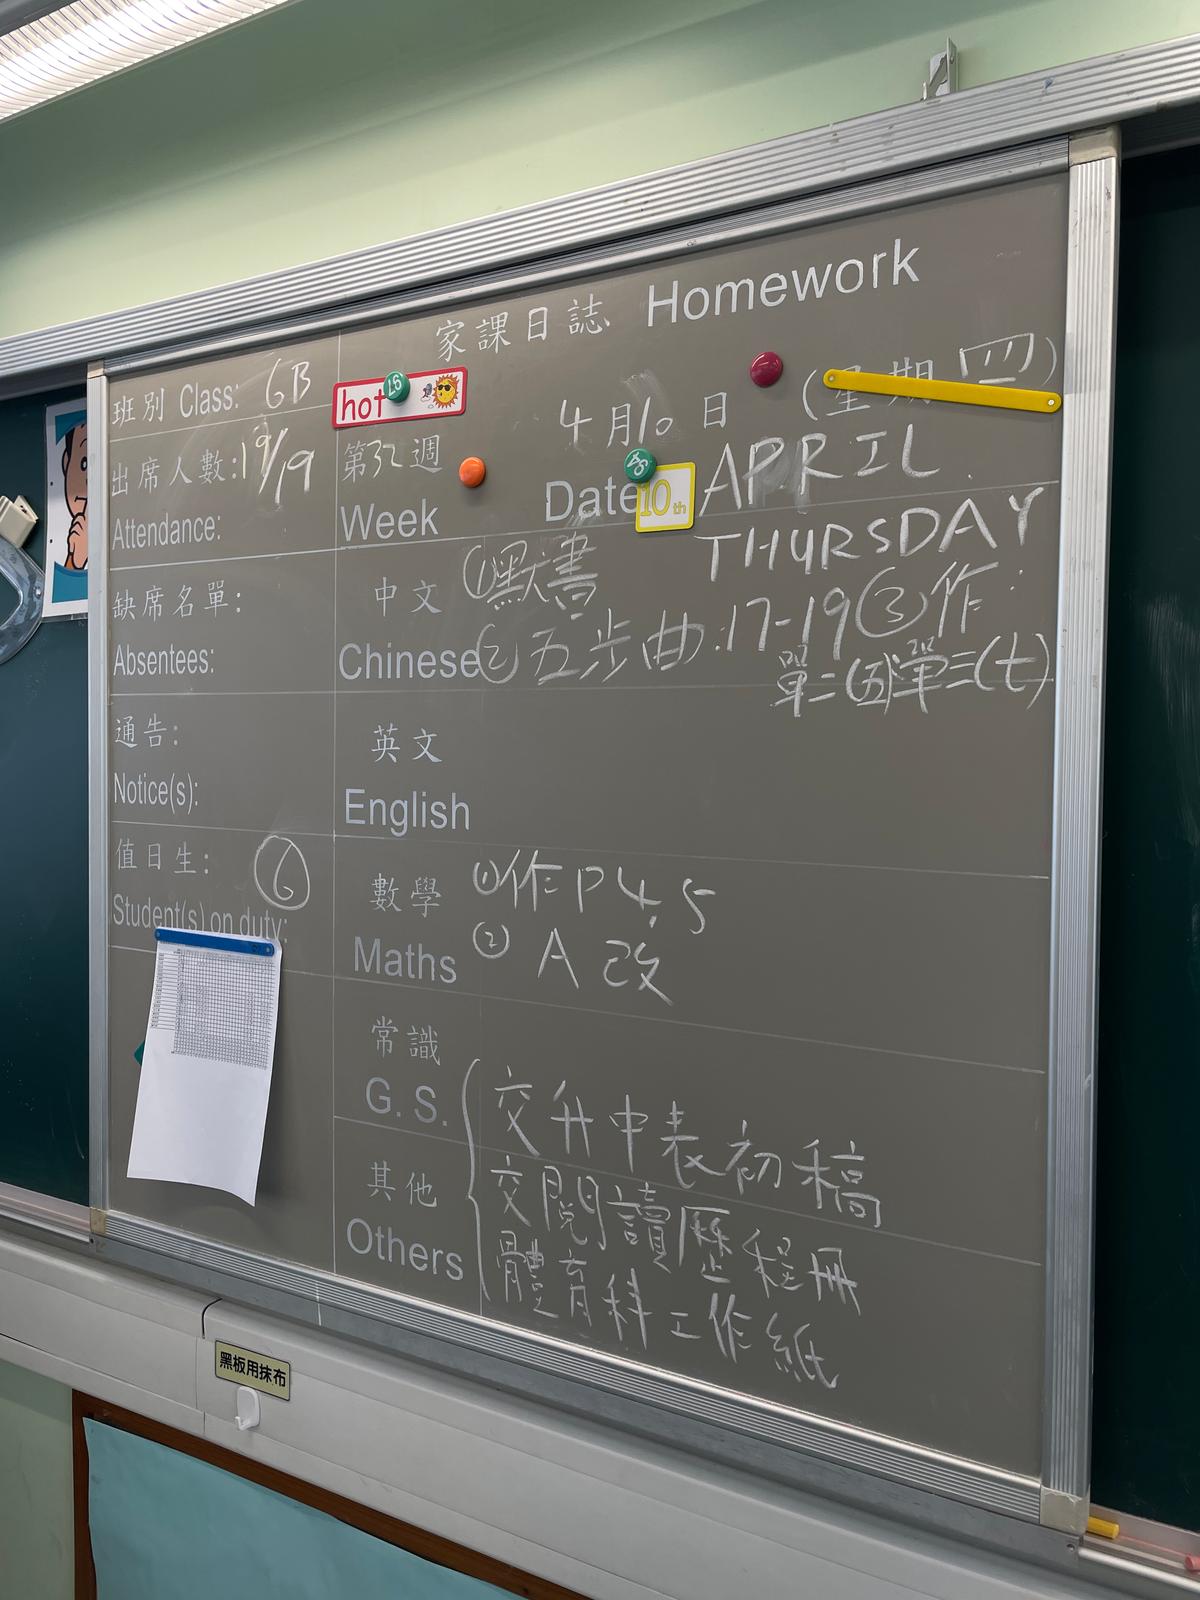 家課日誌 Homework
班別 Class: 6B
hot
4月10日 (星期四)
出席人數:19/19
Attendance:
第32週
Week
Date 10th APRIL
THURSDAY
缺席名單:
Absentees:
中文
Chinese
①默書
②五步曲:17-19 ③作:
單二(五) 單二(七)
通告:
Notice(s):
英文
English
值日生: 6
Student(s) on duty:
數學
Maths
①作P4,5
② A改
常識
G. S.
其他
Others
交升中表初稿
交閱讀歷程冊
體育科工作紙
黑板用抹布